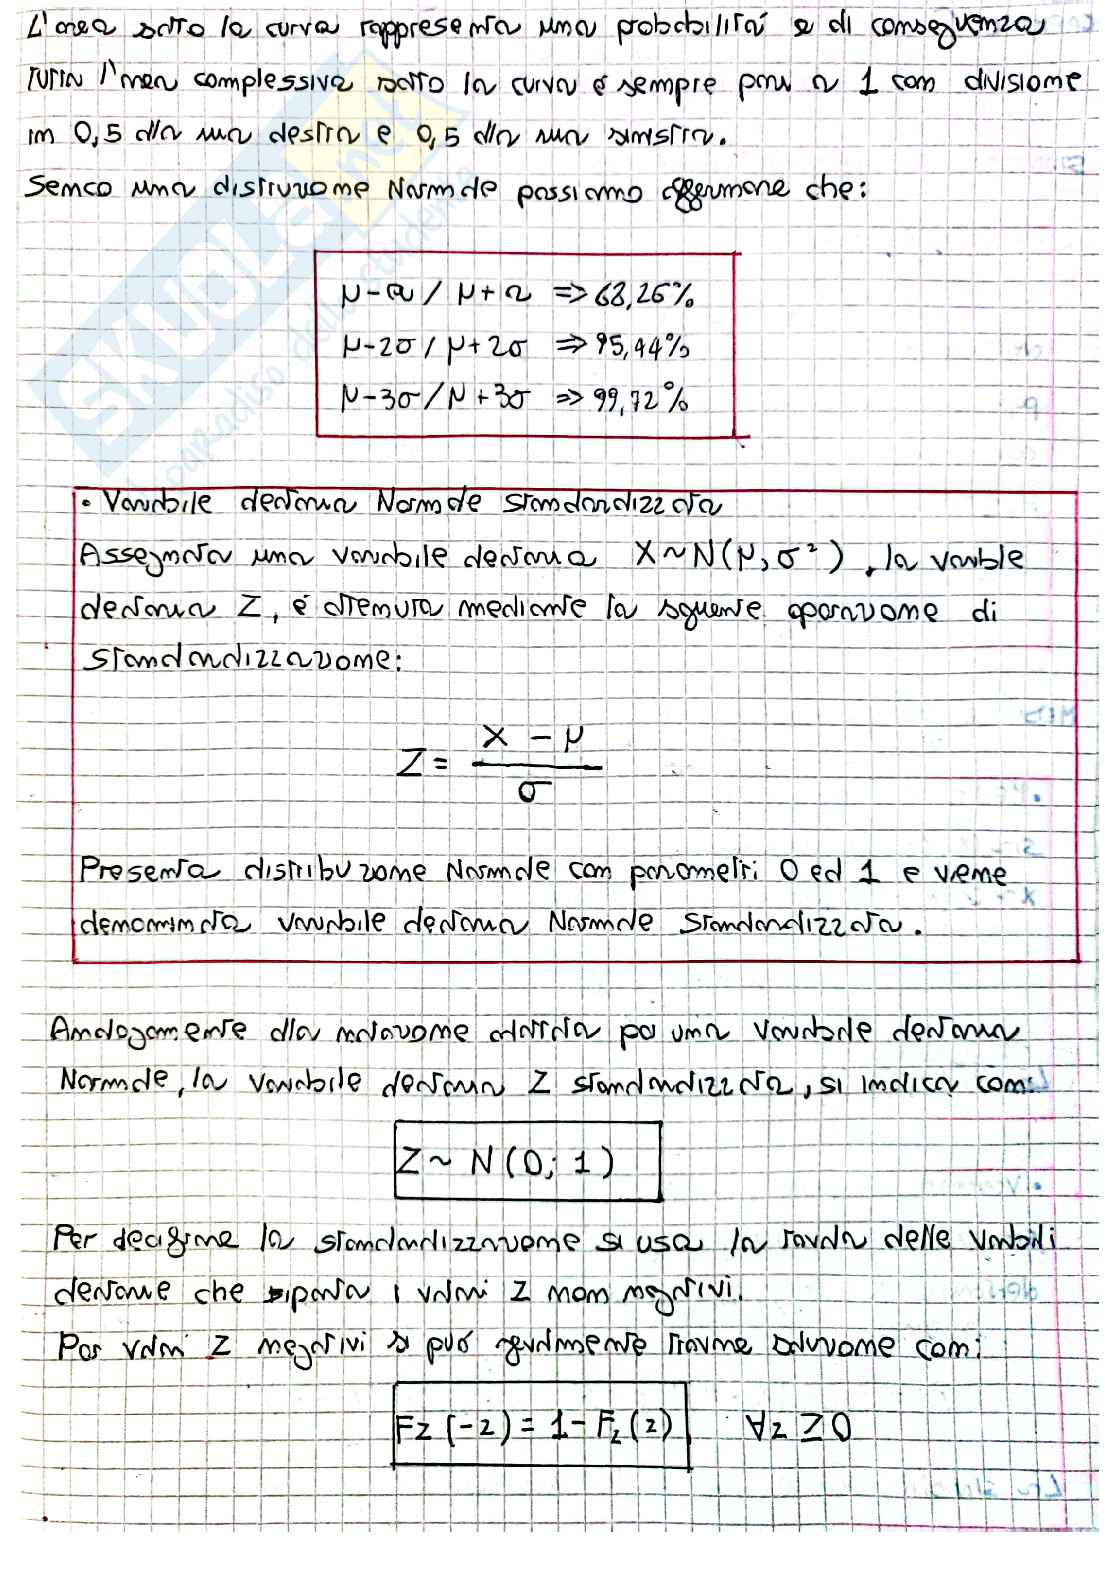 L'area sotto la curva rappresenta una probabilità e di conseguenza
tutta l'area complessiva sotto la curva è sempre pari a 1 con divisione
in 0,5 alla sua destra e 0,5 alla sua sinistra.
Semco una distruzione Normale possiamo affermare che:
μ-σ / μ+σ => 68,26%
μ-2σ / μ+2σ => 95,44%
μ-3σ / μ+3σ => 99,72%
• Variabile aleatoria Normale Standardizzata
Assegnata una variabile aleatoria X~N(μ, σ²), la varible
aleatoria Z, è ottenuta mediante la sguente oparazione di
standardizzazione:
Z = (X - μ) / σ
Presenta distribuzione Normale con parametri 0 ed 1 e viene
denominata variabile aleatoria Normale Standardizzata.
Analogamente alla notazione adottata per una variabile aleatoria
Normale, la variabile aleatoria Z standardizzata, si indica con:
Z ~ N (0; 1)
Per decifrare la standardizzazione si usa la tavola delle variabili
aleatorie che riporta i valori Z non negativi.
Per valori Z negativi si può ugualmente trovare soluzione con:
Fz (-z) = 1 - Fz (z) ∀z ≥ 0
SKUOLA.net
il paradiso dello studente